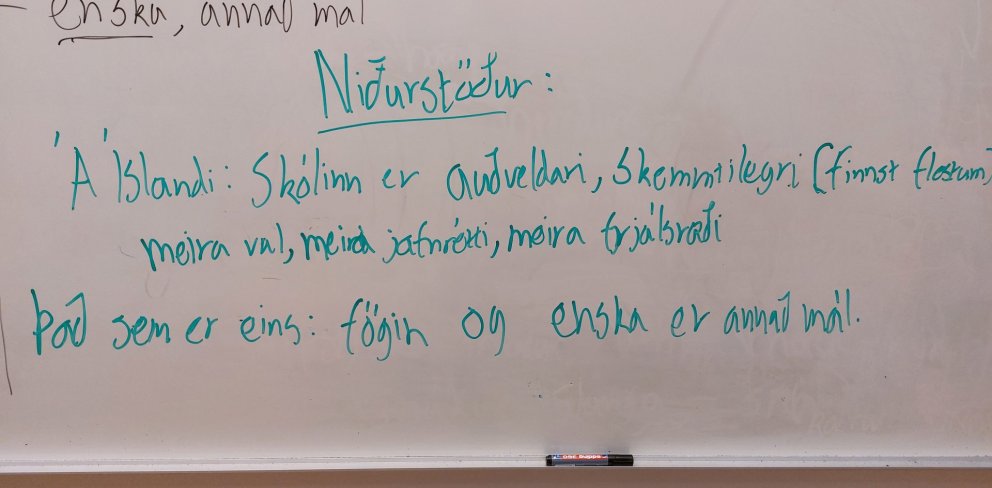 - enska, annað mál
Niðurstöður:
Á Íslandi: Skólinn er auðveldari, skemmtilegri (finnst flestum)
meira val, meira jafnrétti, meira frjálsræði
Það sem er eins: fögin og enska er annað mál.
edding 360